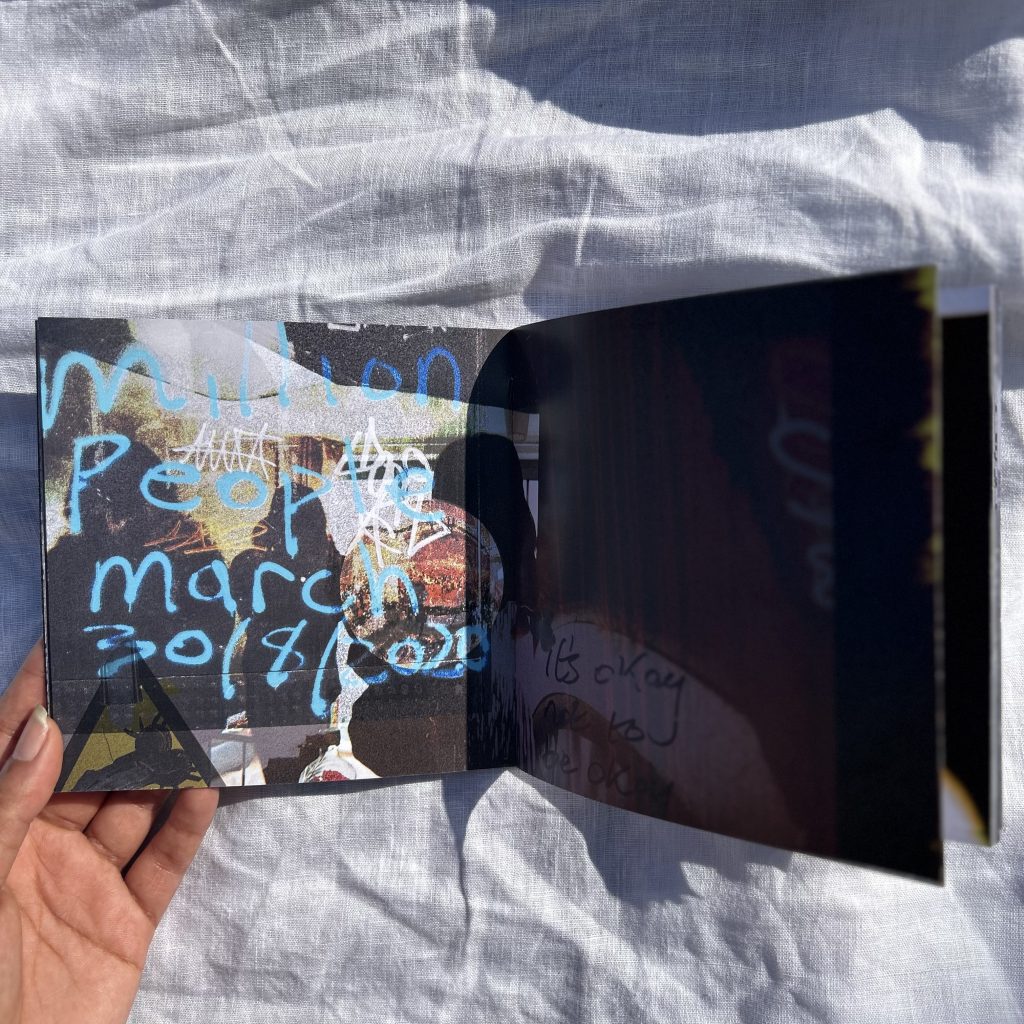 million
People
march
30/8/2020
It's okay
not to
be okay